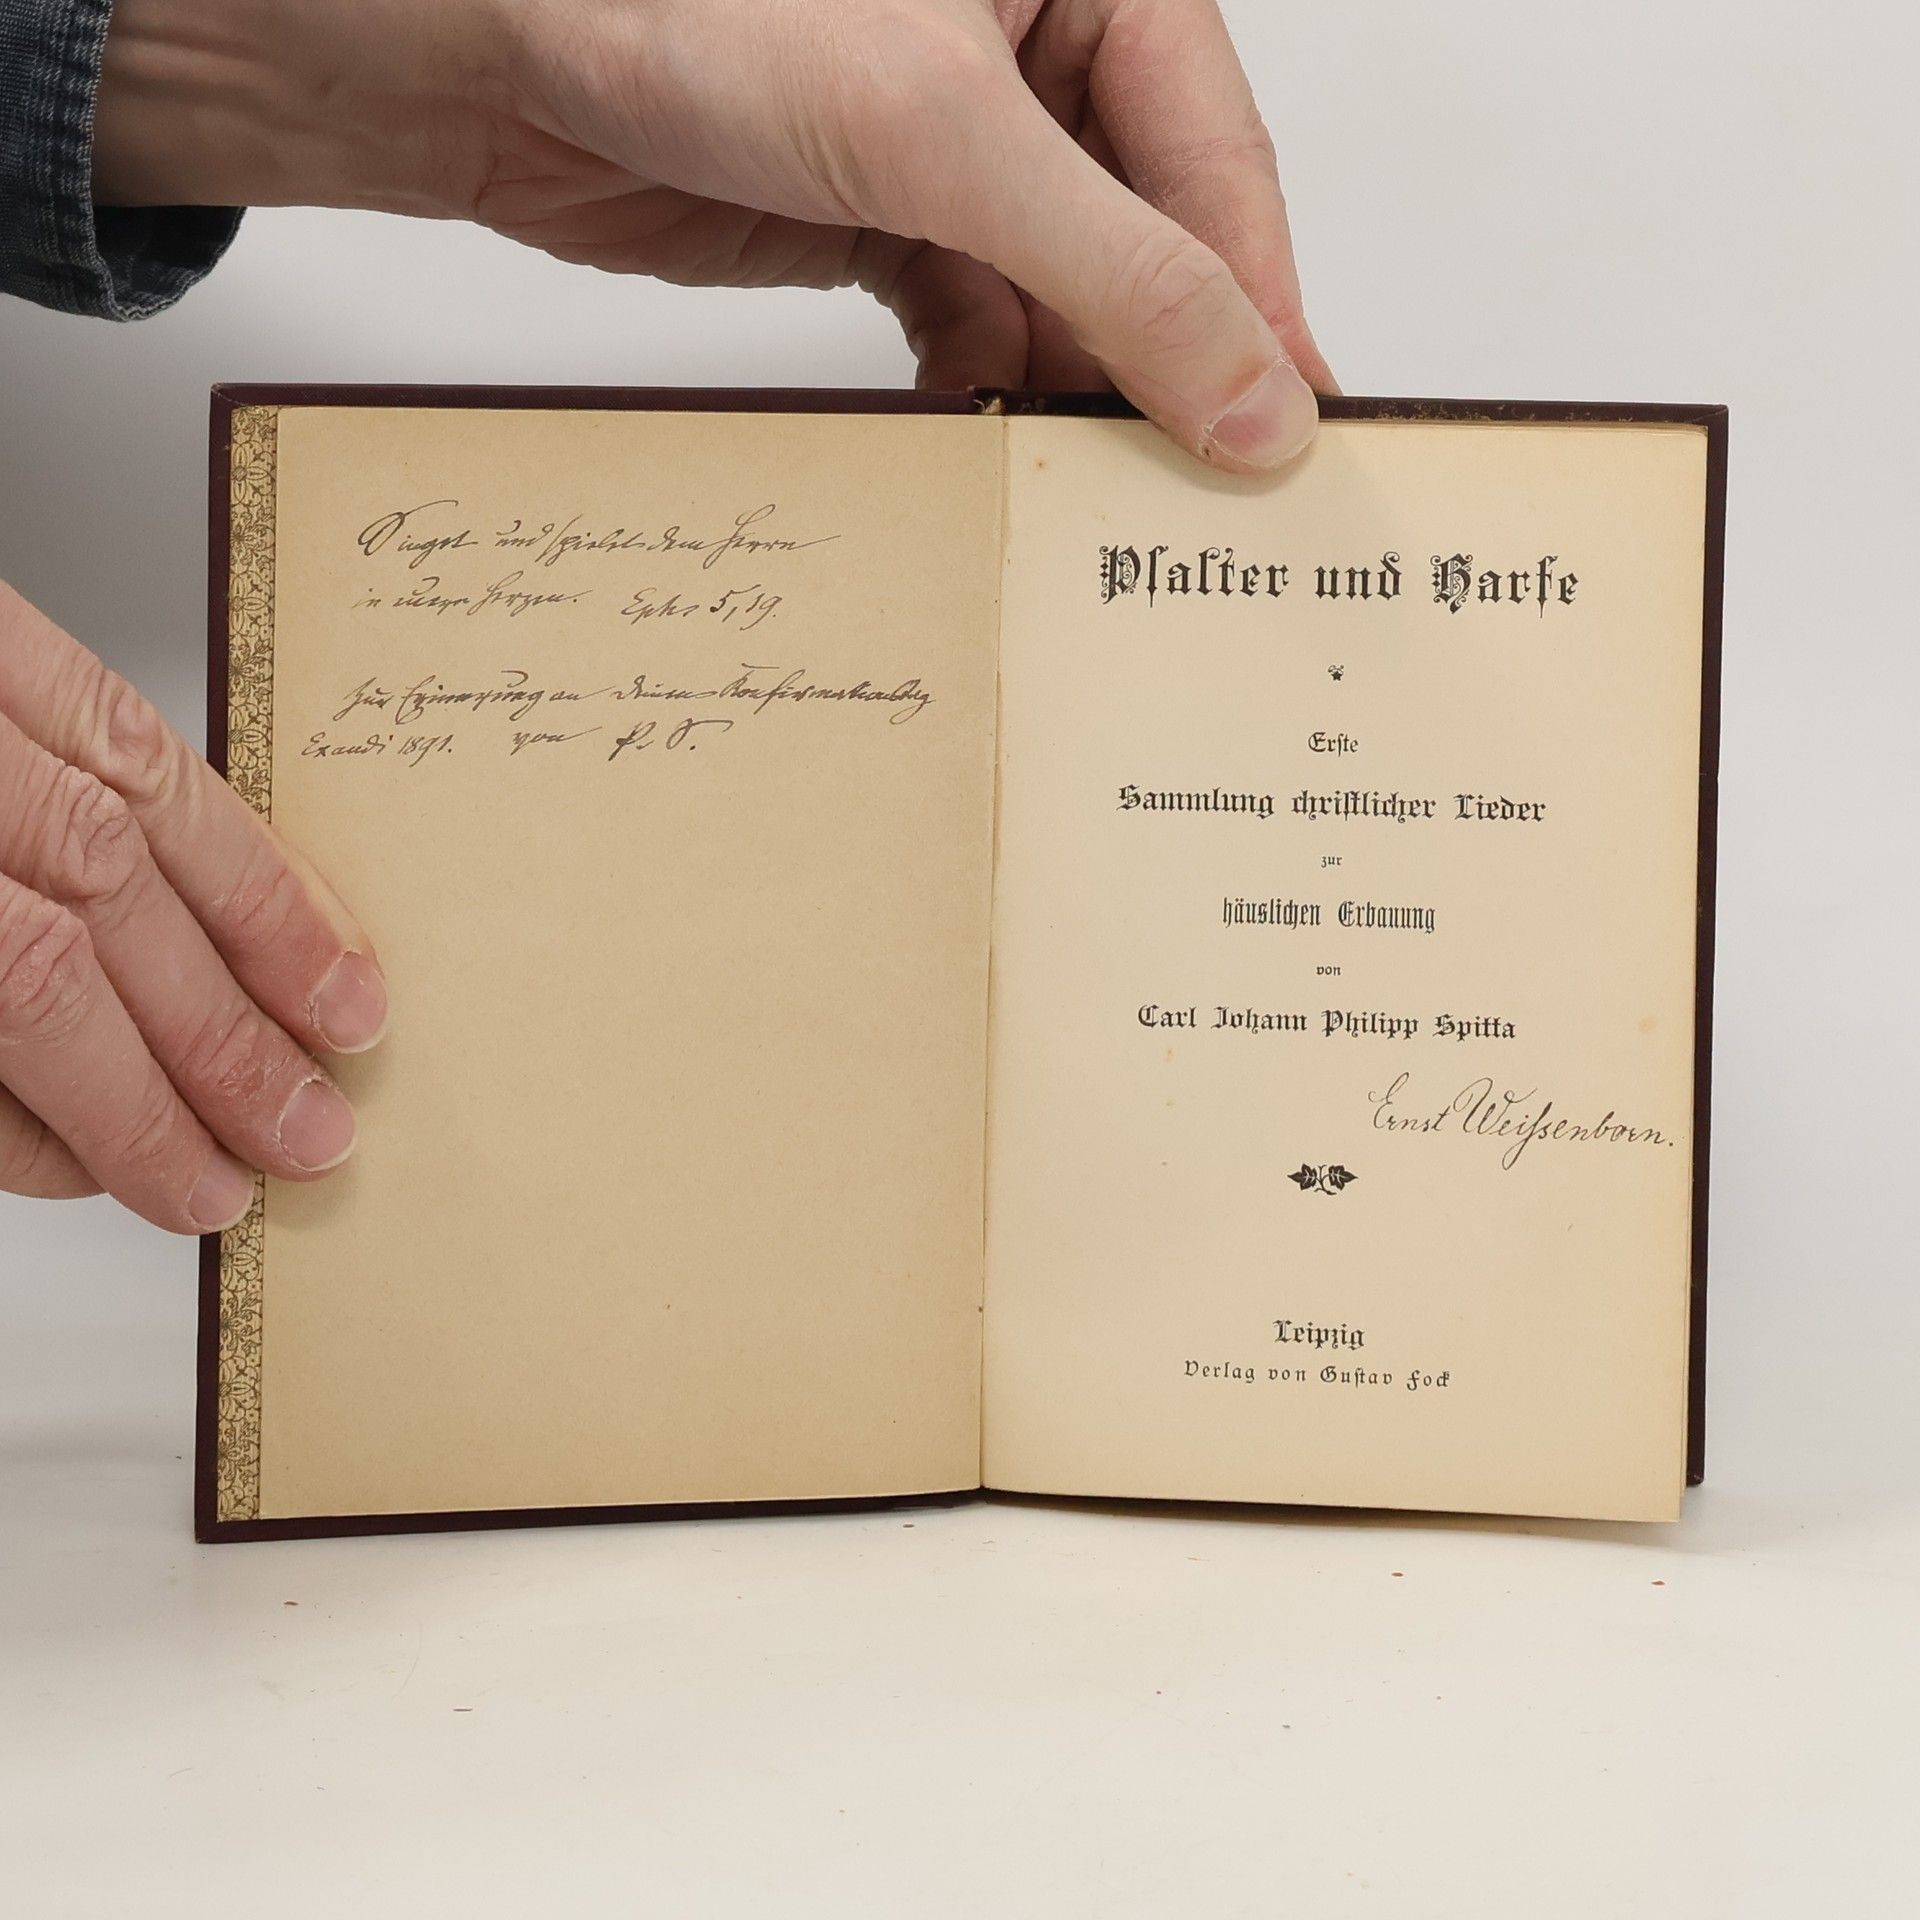 Singet und spielet dem Herrn
in euren Herzen. Ephes 5,19.
Zur Erinnerung an Deinen Konfirmationstag
Exaudi 1891. von P. S.
Pſalter und Harfe
Erſte
Sammlung chriſtlicher Lieder
zur
häuslichen Erbauung
von
Carl Johann Philipp Spitta
Ernst Weiſsenborn.
Leipzig
Verlag von Guſtav Fock